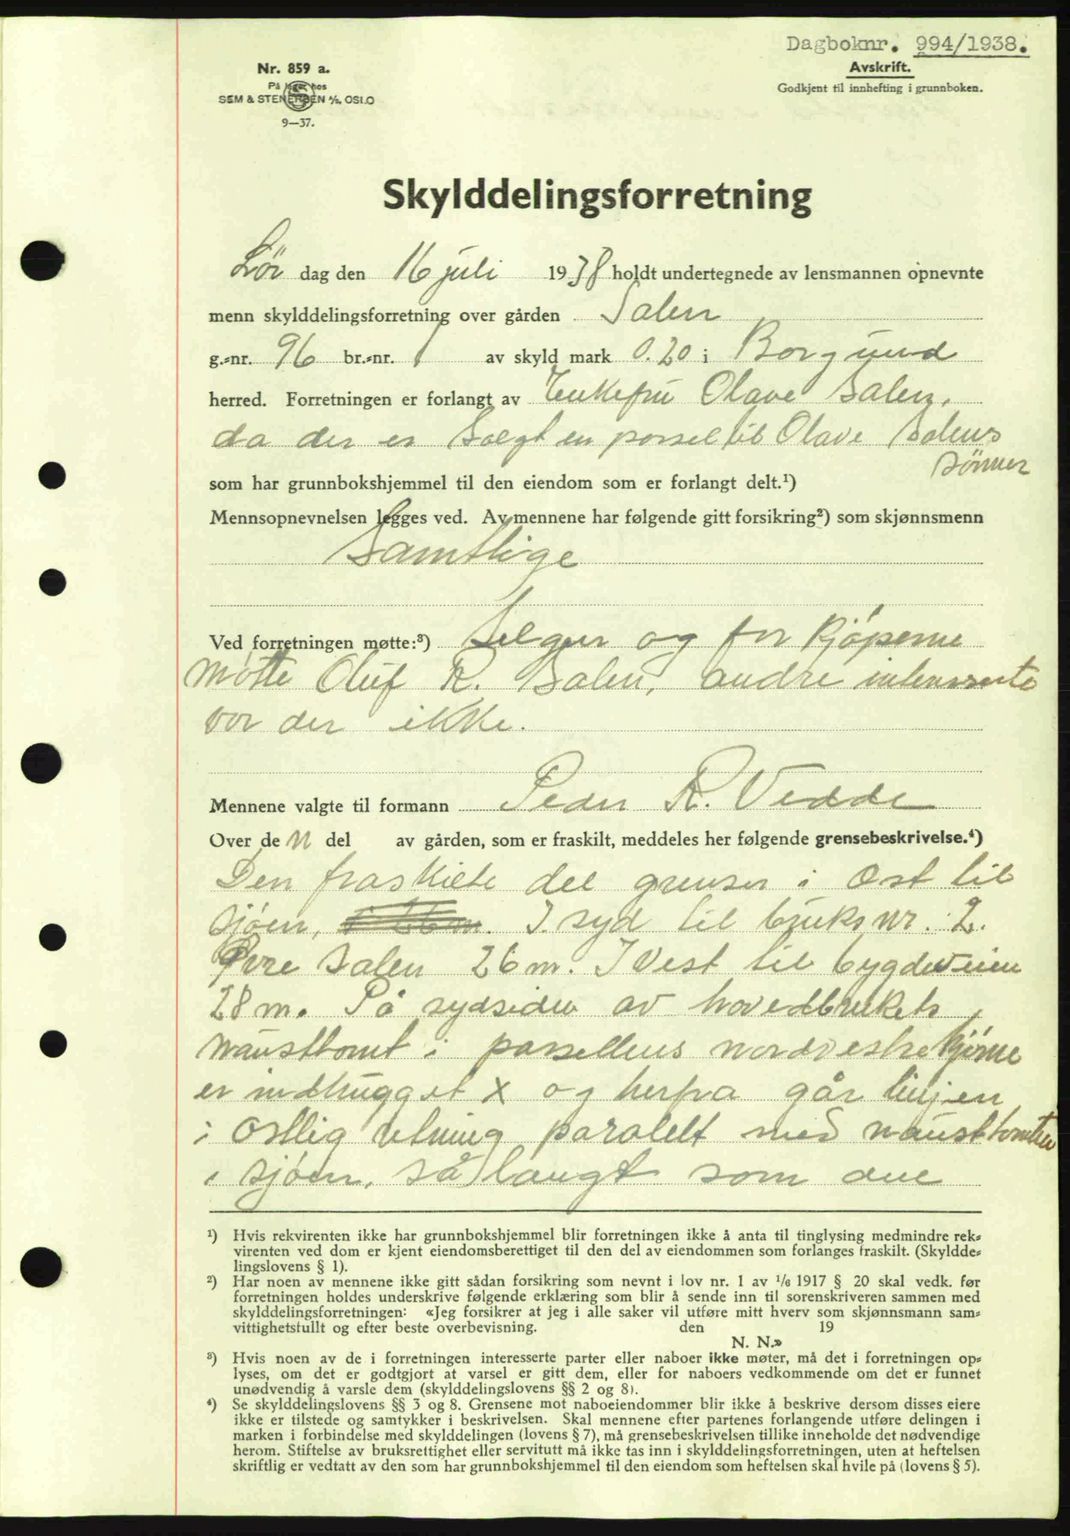 Dagboknr. 994/1938.
Avskrift.
Godkjent til innhefting i grunnboken.
Nr. 859 a.
På lager hos
SEM & STENERSEN A/S, OSLO
9—37.
Skylddelingsforretning
Lør dag den 16 juli 1938 holdt undertegnede av lensmannen opnevnte
menn skylddelingsforretning over gården Salen
g.-nr. 96 br.-nr. 1 av skyld mark 0.20 i Borgund
herred. Forretningen er forlangt av Enkefru Olave Salen,
da der er Solgt en parsel til Olave Salens
sönner
som har grunnbokshjemmel til den eiendom som er forlangt delt.¹)
Mennsopnevnelsen legges ved. Av mennene har følgende gitt forsikring²) som skjønnsmenn
Samtlige
Ved forretningen møtte:³) Selger og for kjöperne
møtte Oluf R. Salen, andre interesserte
var der ikke.
Mennene valgte til formann Peder R. Vedde
Over den del av gården, som er fraskilt, meddeles her følgende grensebeskrivelse.⁴)
Den fraskilte del grenser i Øst til
sjøen, I syd til bruksnr. 2.
Øvre Salen 26 m. I Vest til bygdeveien
28 m. På sydsiden av hovedbrukets
nausttomt i parsellens nordvestre hjörne
er indhugget x og herfra går linjen
i østlig retning paralelt med nausttomten
i sjøen, så langt som due
¹) Hvis rekvirenten ikke har grunnbokshjemmel blir forretningen ikke å anta til tinglysing medmindre rek-
virenten ved dom er kjent eiendomsberettiget til den del av eiendommen som forlanges fraskilt. (Skyldde-
lingslovens § 1).
²) Har noen av mennene ikke gitt sådan forsikring som nevnt i lov nr. 1 av ¹/₆ 1917 § 20 skal vedk. før
forretningen holdes underskrive følgende erklæring som blir å sende inn til sorenskriveren sammen med
skylddelingsforretningen: «Jeg forsikrer at jeg i alle saker vil utføre mitt hverv som skjønnsmann sam-
vittighetsfullt og efter beste overbevisning. den 19
N. N.»
³) Hvis noen av de i forretningen interesserte parter eller naboer ikke møter, må det i forretningen op-
lyses, om det er godtgjort at varsel er gitt dem, eller for naboers vedkommende om det er funnet
unødvendig å varsle dem (skylddelingslovens §§ 2 og 8).
⁴) Se skylddelingslovens §§ 3 og 8. Grensene mot naboeiendommer blir ikke å beskrive dersom disses eiere
ikke er tilstede og samtykker i beskrivelsen. Skal mennene efter partenes forlangende utføre delingen i
marken i forbindelse med skylddelingen (lovens § 7), må grensebeskrivelsen tillike inneholde det nødvendige
herom. Stiftelse av bruksrettighet eller servitutt må ikke tas inn i skylddelingsforretningen, uten at heftelsen
skriftlig er vedtatt av den som har grunnbokshjemmel til den eiendom som heftelsen skal hvile på (lovens § 5).